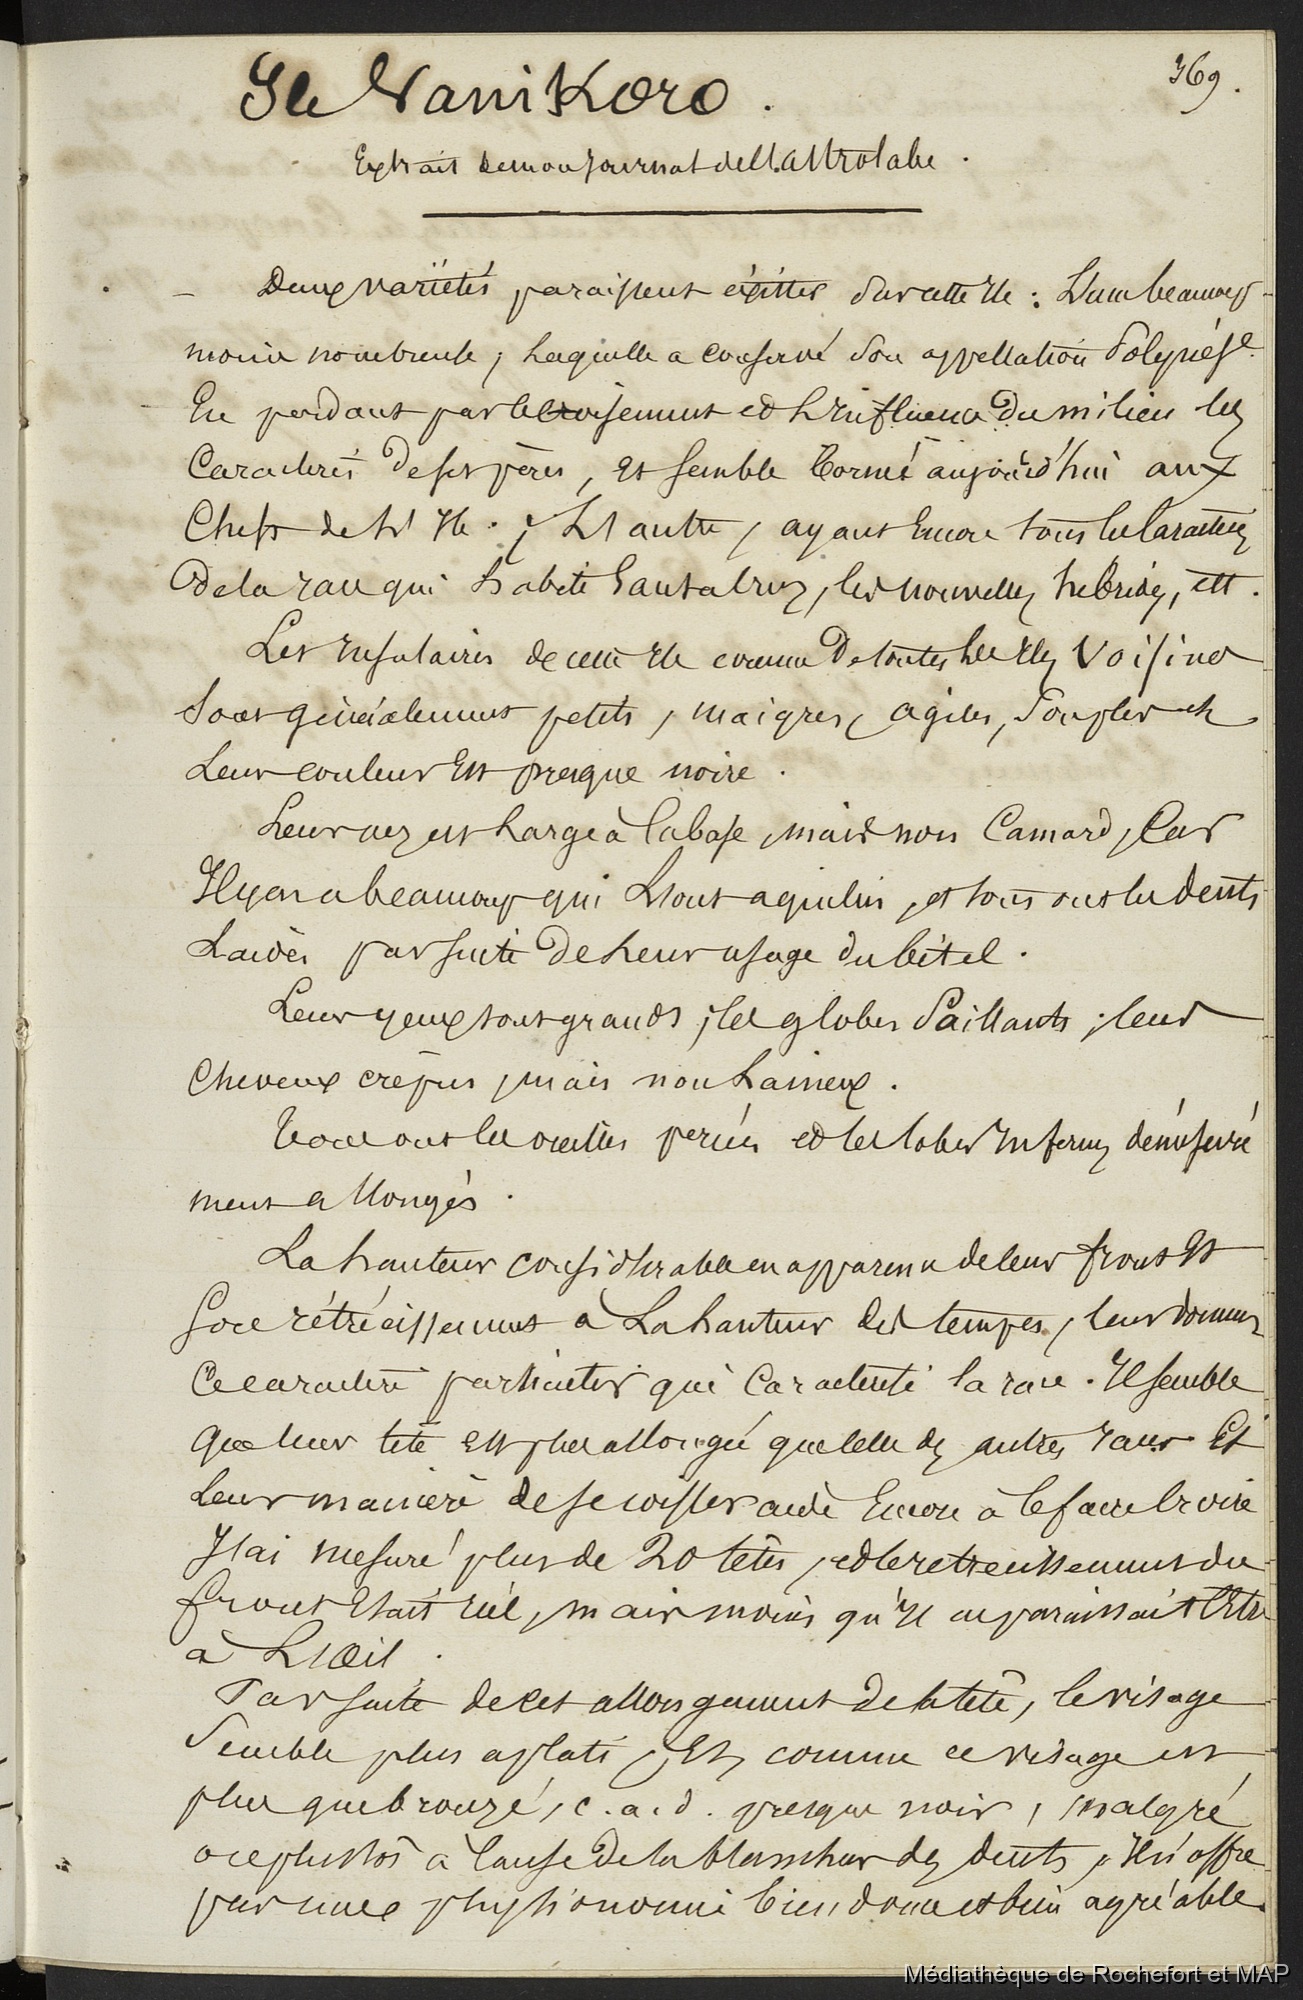 369.
Ile Vanikoro.
Extrait de mon journal de l'Astrolabe.
- Deux variétés paraissent exister sur cette Ile : L'une beaucoup
moins nombreuse, laquelle a conservé son appellation Polynése
En perdant par le croisement et L'influence du milieu les
Caractères de ses pères, et semble bornée aujourd'hui aux
Chefs de L'Ile. ; L'autre, ayant Encore tous les Caractères
De la race qui habite Santa Cruz, les nouvelles hébrides, ett.
Les Insulaires de cette Ile comme De toutes les Iles Voisines
Sont généralement petits, maigres, agiles, souples et
Leur couleur Est presque noire.
Leur nez est Large à la base, mais non Camard, Car
Il y en a beaucoup qui L'ont aquilin, et tous ont les dents
Laides par suite De Leur usage du bétel.
Leurs yeux sont grands, les globes Saillants, leurs
Cheveux crépus, mais non Laineux.
Tous ont les oreilles percées et les lobes Inferieurs démésuré
ment allongés.
La hauteur considérable en apparence de leur front Et
Son rétrécissement à La hauteur des tempes, leur donnent
Ce caractère particulier qui Caractérise la race. Il semble
Que leur tête est plus allongée que celle des autres races Et
Leur manière de se coiffer aide Encore à le faire Croire
J'ai mesuré plus de 20 têtes, et le retrecissement du
front Etait réel, mais moins qu'Il ne paraissait L'être
à L'Œil.
Par suite de cet allongement De la tête, le visage
Semble plus aplati, Et, comme ce visage est
plus que bronzé, c.a.d. presque noir, malgré
ou plustôt à Cause De la blancheur des dents, Il n'offre
pas une physionomie bien douce et bien agréable.
Médiathèque de Rochefort et MAP